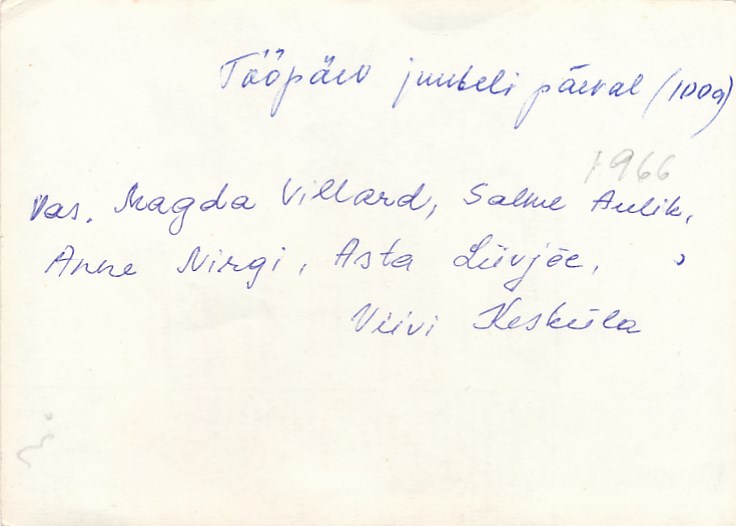 Tööpäev juubeli päeval (100a)
1966
Vas. Magda Villard, Salme Aulik,
Anne Nirgi, Asta Liivjõe, ,
Viivi Kesküla